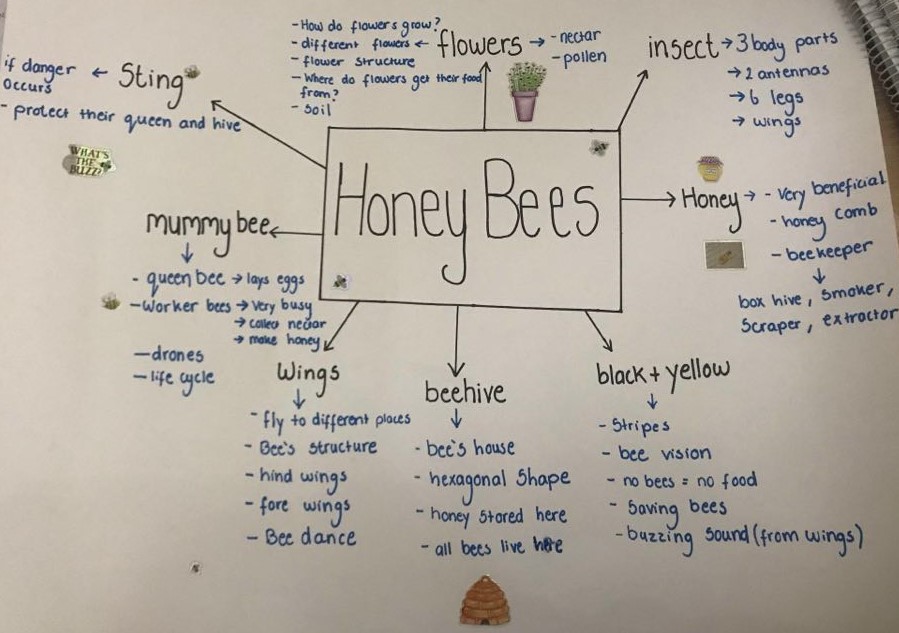 Honey Bees
flowers → - nectar
- pollen
- How do flowers grow?
- different flowers ←
- flower structure
- Where do flowers get their food
from?
- Soil
insect → 3 body parts
→ 2 antennas
→ 6 legs
→ wings
Honey → - very beneficial
- honey comb
- beekeeper
↓
box hive, smoker,
scraper, extractor
black + yellow
↓
- Stripes
- bee vision
- no bees = no food
- Saving bees
- buzzing sound (from wings)
beehive
↓
- bee's house
- hexagonal shape
- honey stored here
- all bees live here
Wings
↓
- fly to different places
- Bee's structure
- hind wings
- fore wings
- Bee dance
mummy bee
↓
- queen bee → lays eggs
- worker bees → very busy
→ collect nectar
→ make honey
- drones
- life cycle
Sting
if danger ←
occurs
- protect their queen and hive
WHAT'S
THE
BUZZ?